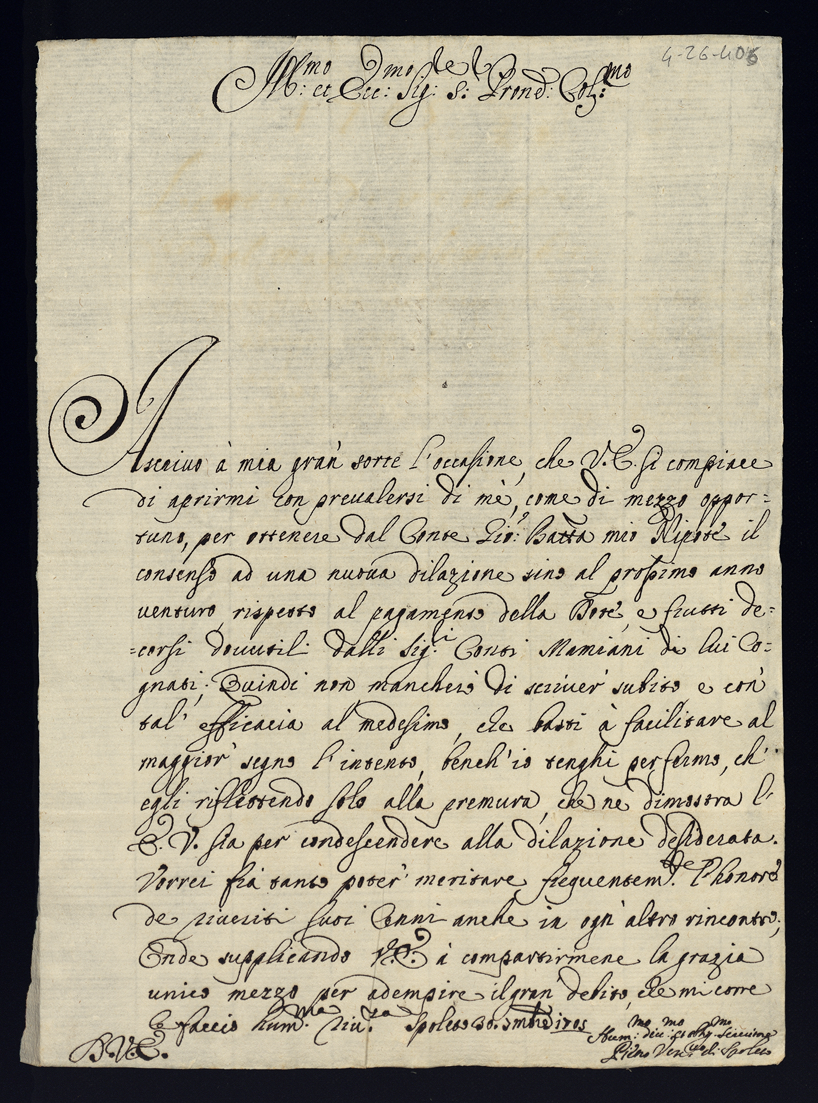 4-26-406
Ill:mo et Ecc:mo Sig:re S: Pron: Col:mo
Ascrivo à mia gran' sorte l'occasione, che V.E. si compiace
di aprirmi con prevalersi di mè, come di mezzo oppor=
tuno, per ottenere dal Conte Gio: Batta mio Nipote il
consenso ad una nuova dilazione sino al prossimo anno
venturo, rispetto al pagamento della Dote, e frutti de=
=corsi dovutili dalli Sig:i Conti Mamiani di lui Co=
gnati; Quindi non mancherò di scriver' subito e con'
tal' efficacia al medesimo, che basti à facilitare al
maggior' segno l'intento, bench'io tenghi per fermo, ch'
egli riflettendo solo alla premura, che ne dimostra l'
E.V. sia per condescendere alla dilazione desiderata.
Vorrei frà tanto poter' meritare frequentem:te l'honore
de riveriti suoi Cenni anche in ogn' altro rincontro;
Onde supplicando V.E. à compartirmene la grazia
unico mezzo per adempire il gran' debito, che mi corre
Le faccio hum:ma riv:za Spoleto 30. 1705
B.V.E.
Hum:mo div:mo et oblig:mo
di Spoleto